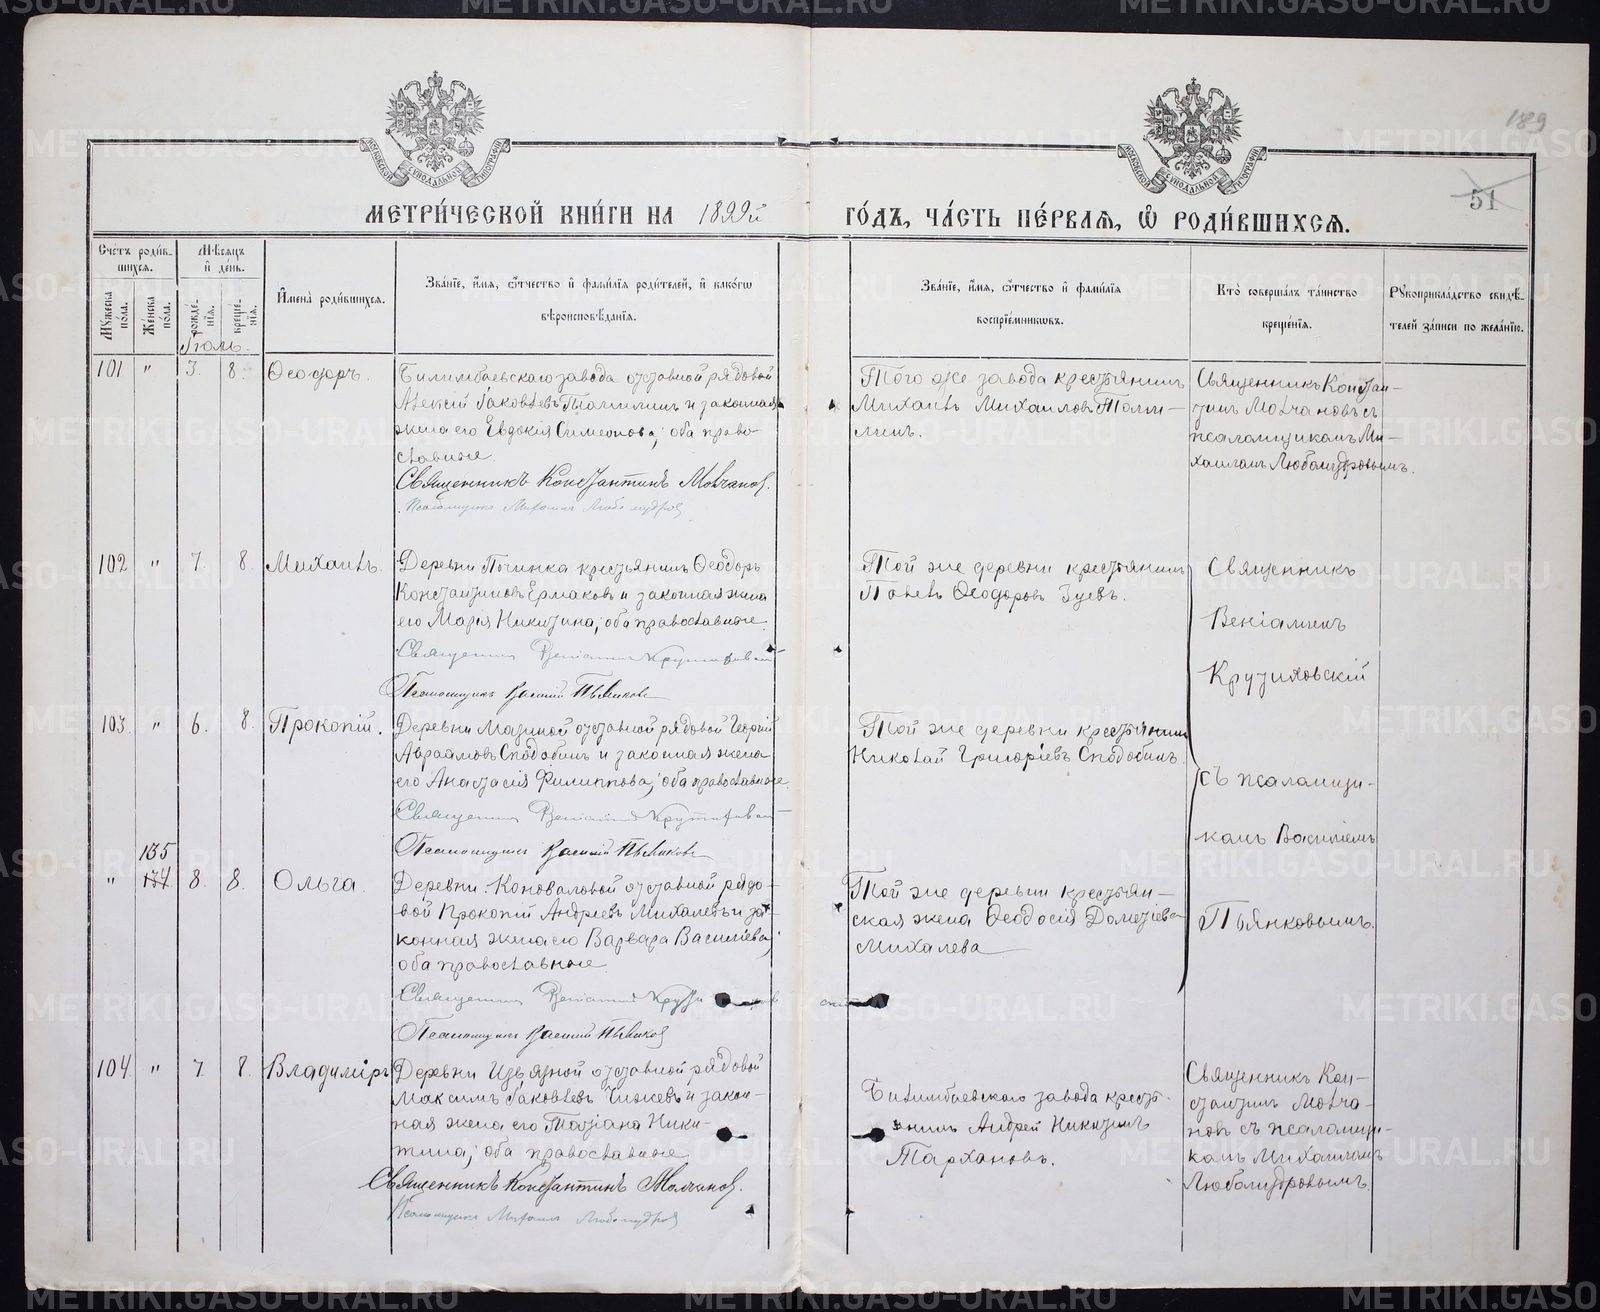 189
51
МОСКОВСКОЙ СѴНОДАЛЬНОЙ ТИПОГРАФІИ
МОСКОВСКОЙ СѴНОДАЛЬНОЙ ТИПОГРАФІИ
МЕТРИ́ЧЕСКОЙ КНИ́ГИ НА 1899й ГО́ДЪ, ЧА́СТЬ ПЕ́РВАЯ, Ѡ РОДИ́ВШИХСЯ.
Сче́тъ роди́в-
шихся.
Му́жеска по́ла.
Же́нска по́ла.
Мѣ́сяцъ
и́ де́нь.
рожде́-
нія.
креще́-
нія.
И҆мена̀ роди́вшихся.
Зва́нїе, и҆́мя, ѻ҆́тчество и҆ фами́лїя роди́телей, и҆ како́гѡ
вѣроисповѣ́данїя.
Зва́нїе, и҆́мя, ѻ҆́тчество и҆ фами́лїя
воспрїе́мникѡвъ.
Кто̀ соверша́лъ та́инство
креще́нїя.
Рꙋкоприкла́дство свидѣ́-
телей за́писи по жела́нїю.
Іюль.
101 " 3. 8. Ѳеодоръ.
Билимбаевскаго завода отставной рядовой
Алексій Іаковлевъ и законная
жена его Евдокія Симеонова; оба право-
славные.
Священникъ Константинъ Молчановъ.
Псаломщикъ Михаилъ Любомудровъ
Того же завода крестьянинъ
Михаилъ Михаиловъ
Священникъ Констан-
тинъ Молчановъ съ
псаломщикомъ Ми-
хаиломъ Любомудровымъ.
102 " 7. 8. Михаилъ.
Деревни Починка крестьянинъ Ѳеодоръ
Константиновъ Ермаковъ и законная жена
его Марія Никитина; оба православные.
Священникъ Веніаминъ Крутиховскій
Псаломщикъ Василій Пьянковъ
Той же деревни крестьянинъ
Павелъ Ѳеодоровъ Зуевъ.
Священникъ
Веніаминъ
Крутиховскій
съ псаломщи-
комъ Василіемъ
Пьянковымъ.
103 " 6. 8. Прокопій.
Деревни Мазиной отставной рядовой Георгій
Авраамовъ Сподобинъ и законная жена
его Анастасія Филиппова; оба православные.
Священникъ Веніаминъ Крутиховскій
Псаломщикъ Василій Пьянковъ
Той же деревни крестьянинъ
Николай Григоріевъ Сподобинъ.
135
" 134 8. 8. Ольга.
Деревни Коноваловой отставной рядо-
вой Прокопій Андреевъ Михалевъ и за-
конная жена его Варвара Василіева;
оба православные.
Священникъ Веніаминъ Крутиховскій
Псаломщикъ Василій Пьянковъ
Той же деревни крестьян-
ская жена Ѳеодосія Дометіева
Михалева
104 " 7. 8. Владиміръ
Деревни Извязной отставной рядовой
Максимъ Іаковлевъ Чижевъ и закон-
ная жена его Татіана Ники-
тина; оба православные.
Священникъ Константинъ Молчановъ.
Псаломщикъ Михаилъ Любомудровъ
Билимбаевскаго завода кресть-
янинъ Андрей Никитинъ
Тархановъ.
Священникъ Кон-
стантинъ Молча-
новъ съ псаломщи-
комъ Михаиломъ
Любомудровымъ.
METRIKI.GASO-URAL.RU